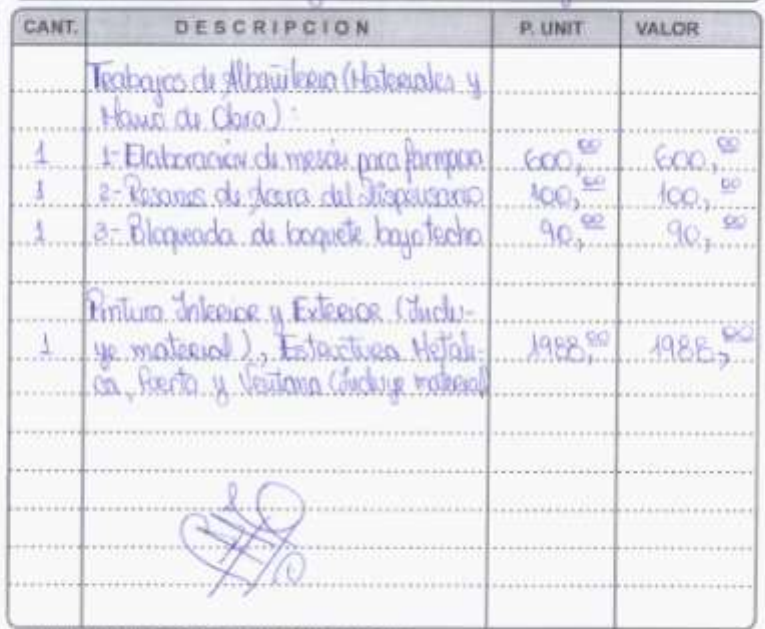 CANT. DESCRIPCION P. UNIT VALOR
Trabajos de Albañileria (Materiales y
Mano de Obra):
1 1- Elaboración de mesón para 600,00 600,00
1 2- Resanes de del Dispensario 100,00 100,00
1 3- Bloqueada de boquete bajo techo 90,00 90,00
Pintura Interior y Exterior (Inclu-
1 ye material), Estructura Metali- 1988,00 1988,00
ca, Puerta y Ventana (Incluye material)